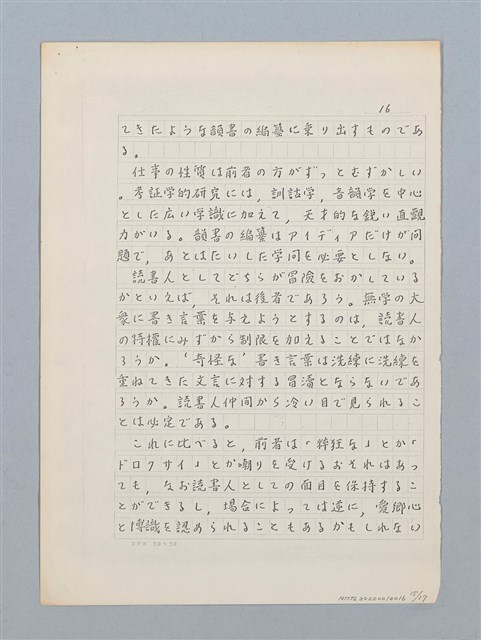 16
てきたような韻書の編纂に乗り出すものであ
る。
仕事の性質は前者の方がずっとむずかしい
。考証学的研究には，訓詁学，音韻学を中心
とした広い学識に加えて，天才的な鋭い直観
力がいる。韻書の編纂はアイディアだけが問
題で，あとはたいした学問を必要としない。
読書人としてどちらが冒険をおかしている
かといえば，それは後者であろう。無学の大
衆に書き言葉を与えようとするのは，読書人
の特権にみずから制限を加えることではなか
ろうか。‘奇怪な’書き言葉は洗練に洗練を
重ねてきた文言に対する冒瀆とならないであ
ろうか。読書人仲間から冷い目で見られるこ
とは必定である。
これに比べると，前者は「粋狂な」とか「
ドロクサイ」とか嘲りを受けるおそれはあっ
ても，なお読書人としての面目を保持するこ
とができるし，場合によっては逆に，愛郷心
と博識を認められることもあるかもしれない
NMTL20220010016 15/17